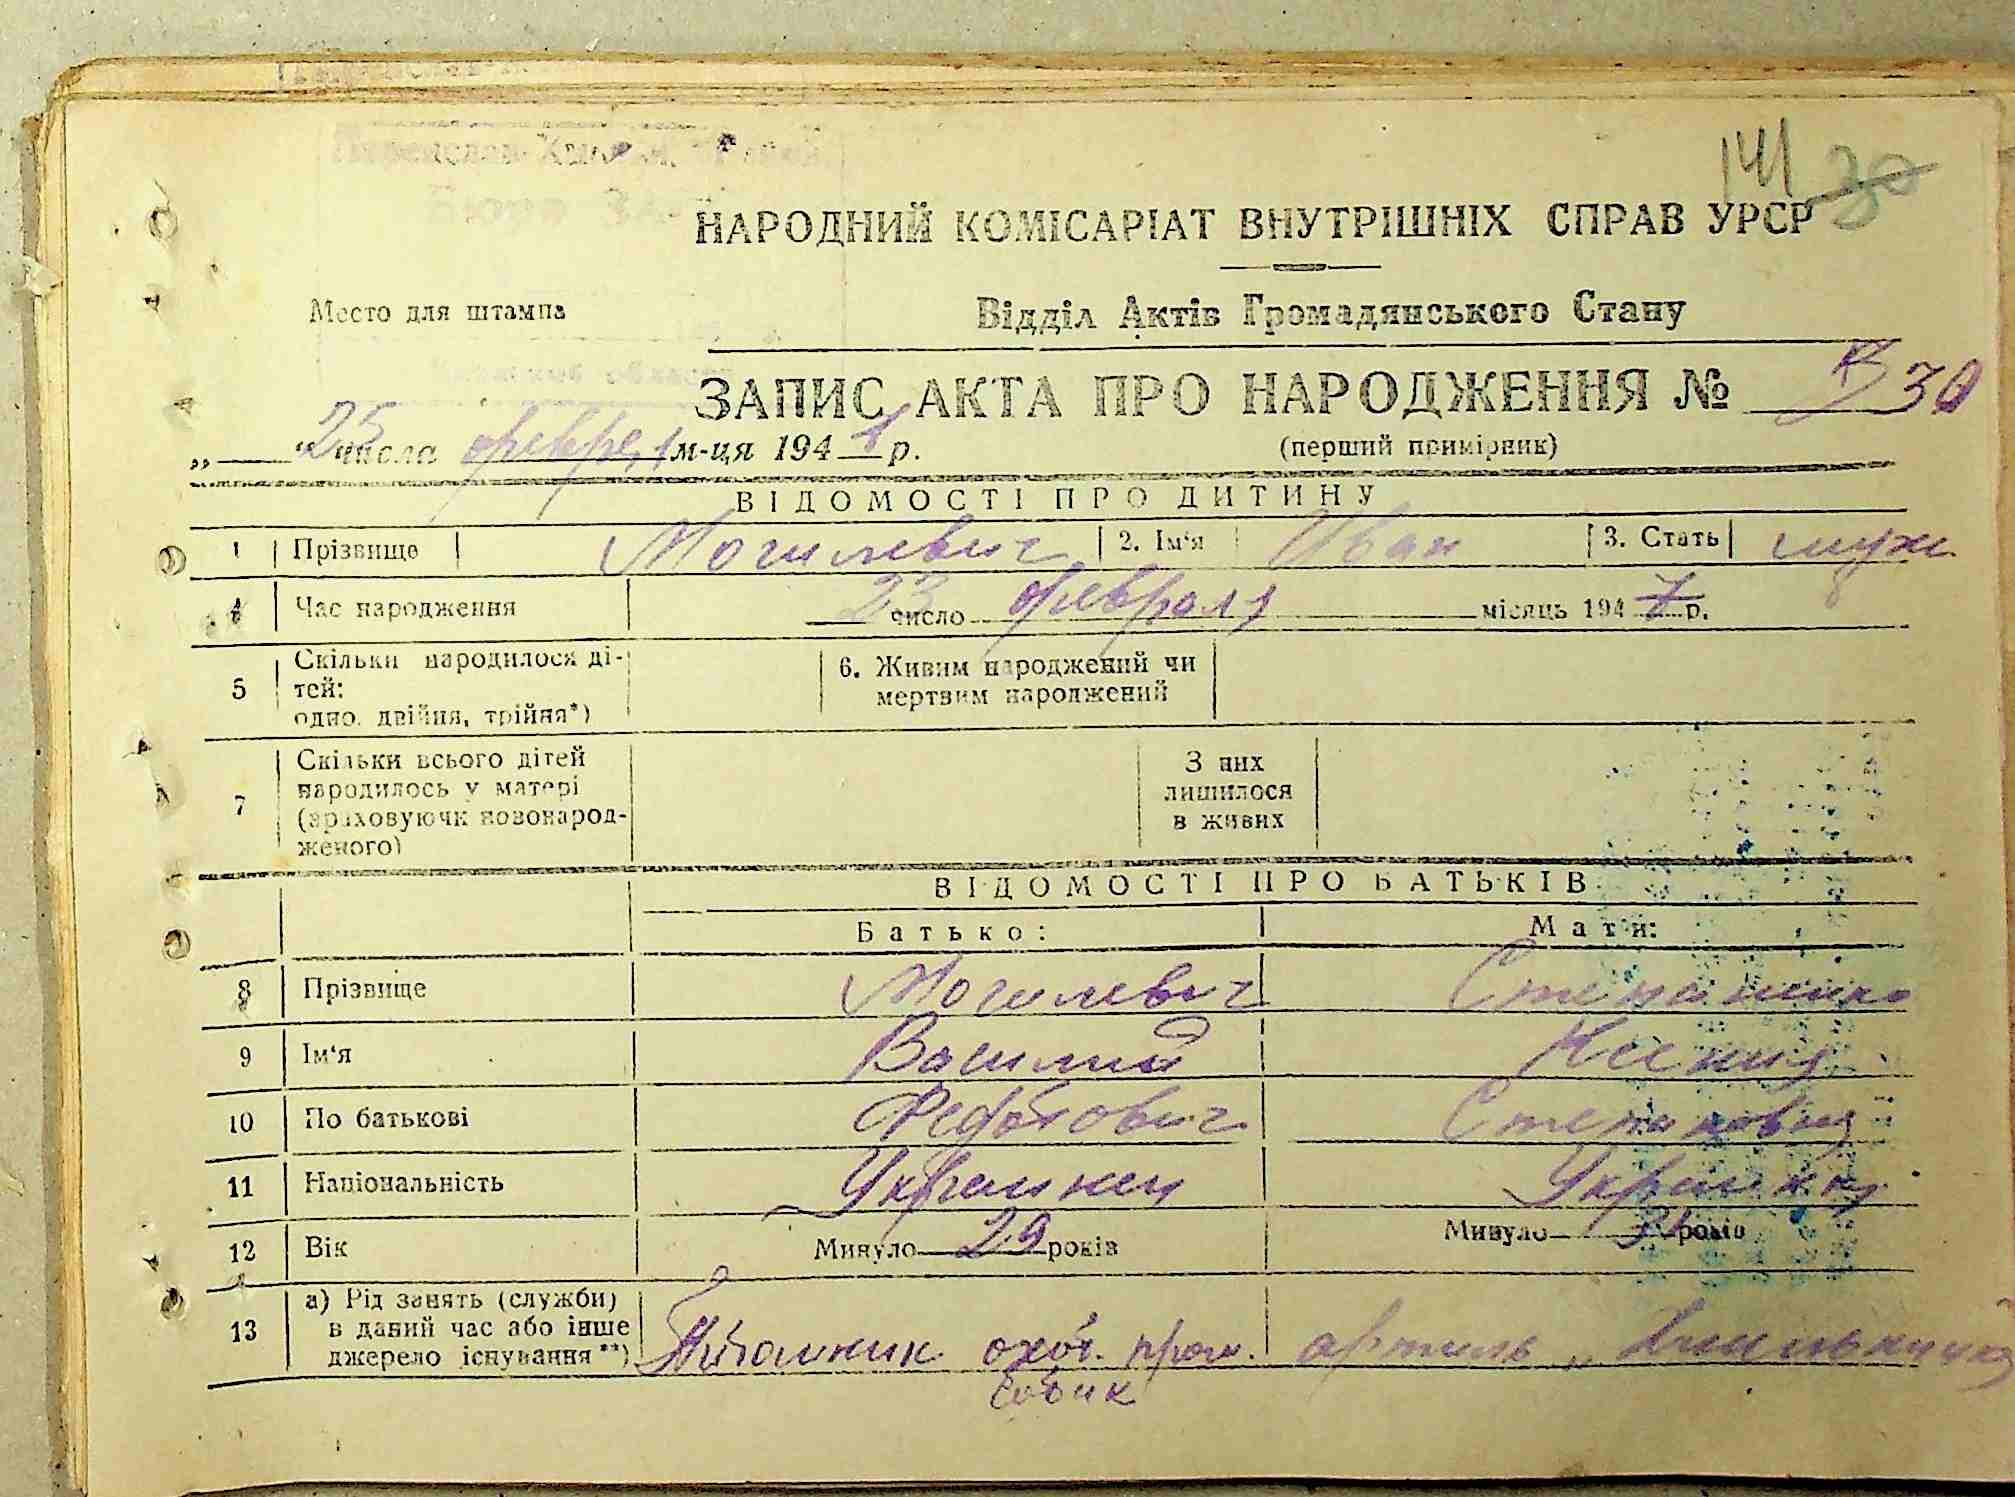 141 30
НАРОДНИЙ КОМІСАРІАТ ВНУТРІШНІХ СПРАВ УРСР
Место для штампа
Відділ Актів Громадянського Стану
ЗАПИС АКТА ПРО НАРОДЖЕННЯ № 30
„ 25 “ числа февраля м-ця 1941 р. (перший примірник)
ВІДОМОСТІ ПРО ДИТИНУ
1 Прізвище Могилевич 2. Ім‘я Иван 3. Стать муж.
4 Час народження 23 число февраля місяць 194 р.
5 Скільки народилося ді-
тей:
одно, двійня, трійня*)
6. Живим народжений чи
мертвим народжений
7 Скільки всього дітей
народилось у матері
(враховуючи новонарод-
женого)
З них
лишилося
в живих
ВІДОМОСТІ ПРО БАТЬКІВ
Батько: Мати:
8 Прізвище Могилевич Степаненко
9 Ім‘я Василий Ксения
10 По батькові Федотович Степановна
11 Національність Украинец Украинка
12 Вік Минуло 29 років Минуло років
13 а) Рід занять (служби)
в даний час або інше
джерело існування**)
охот. пром. артель